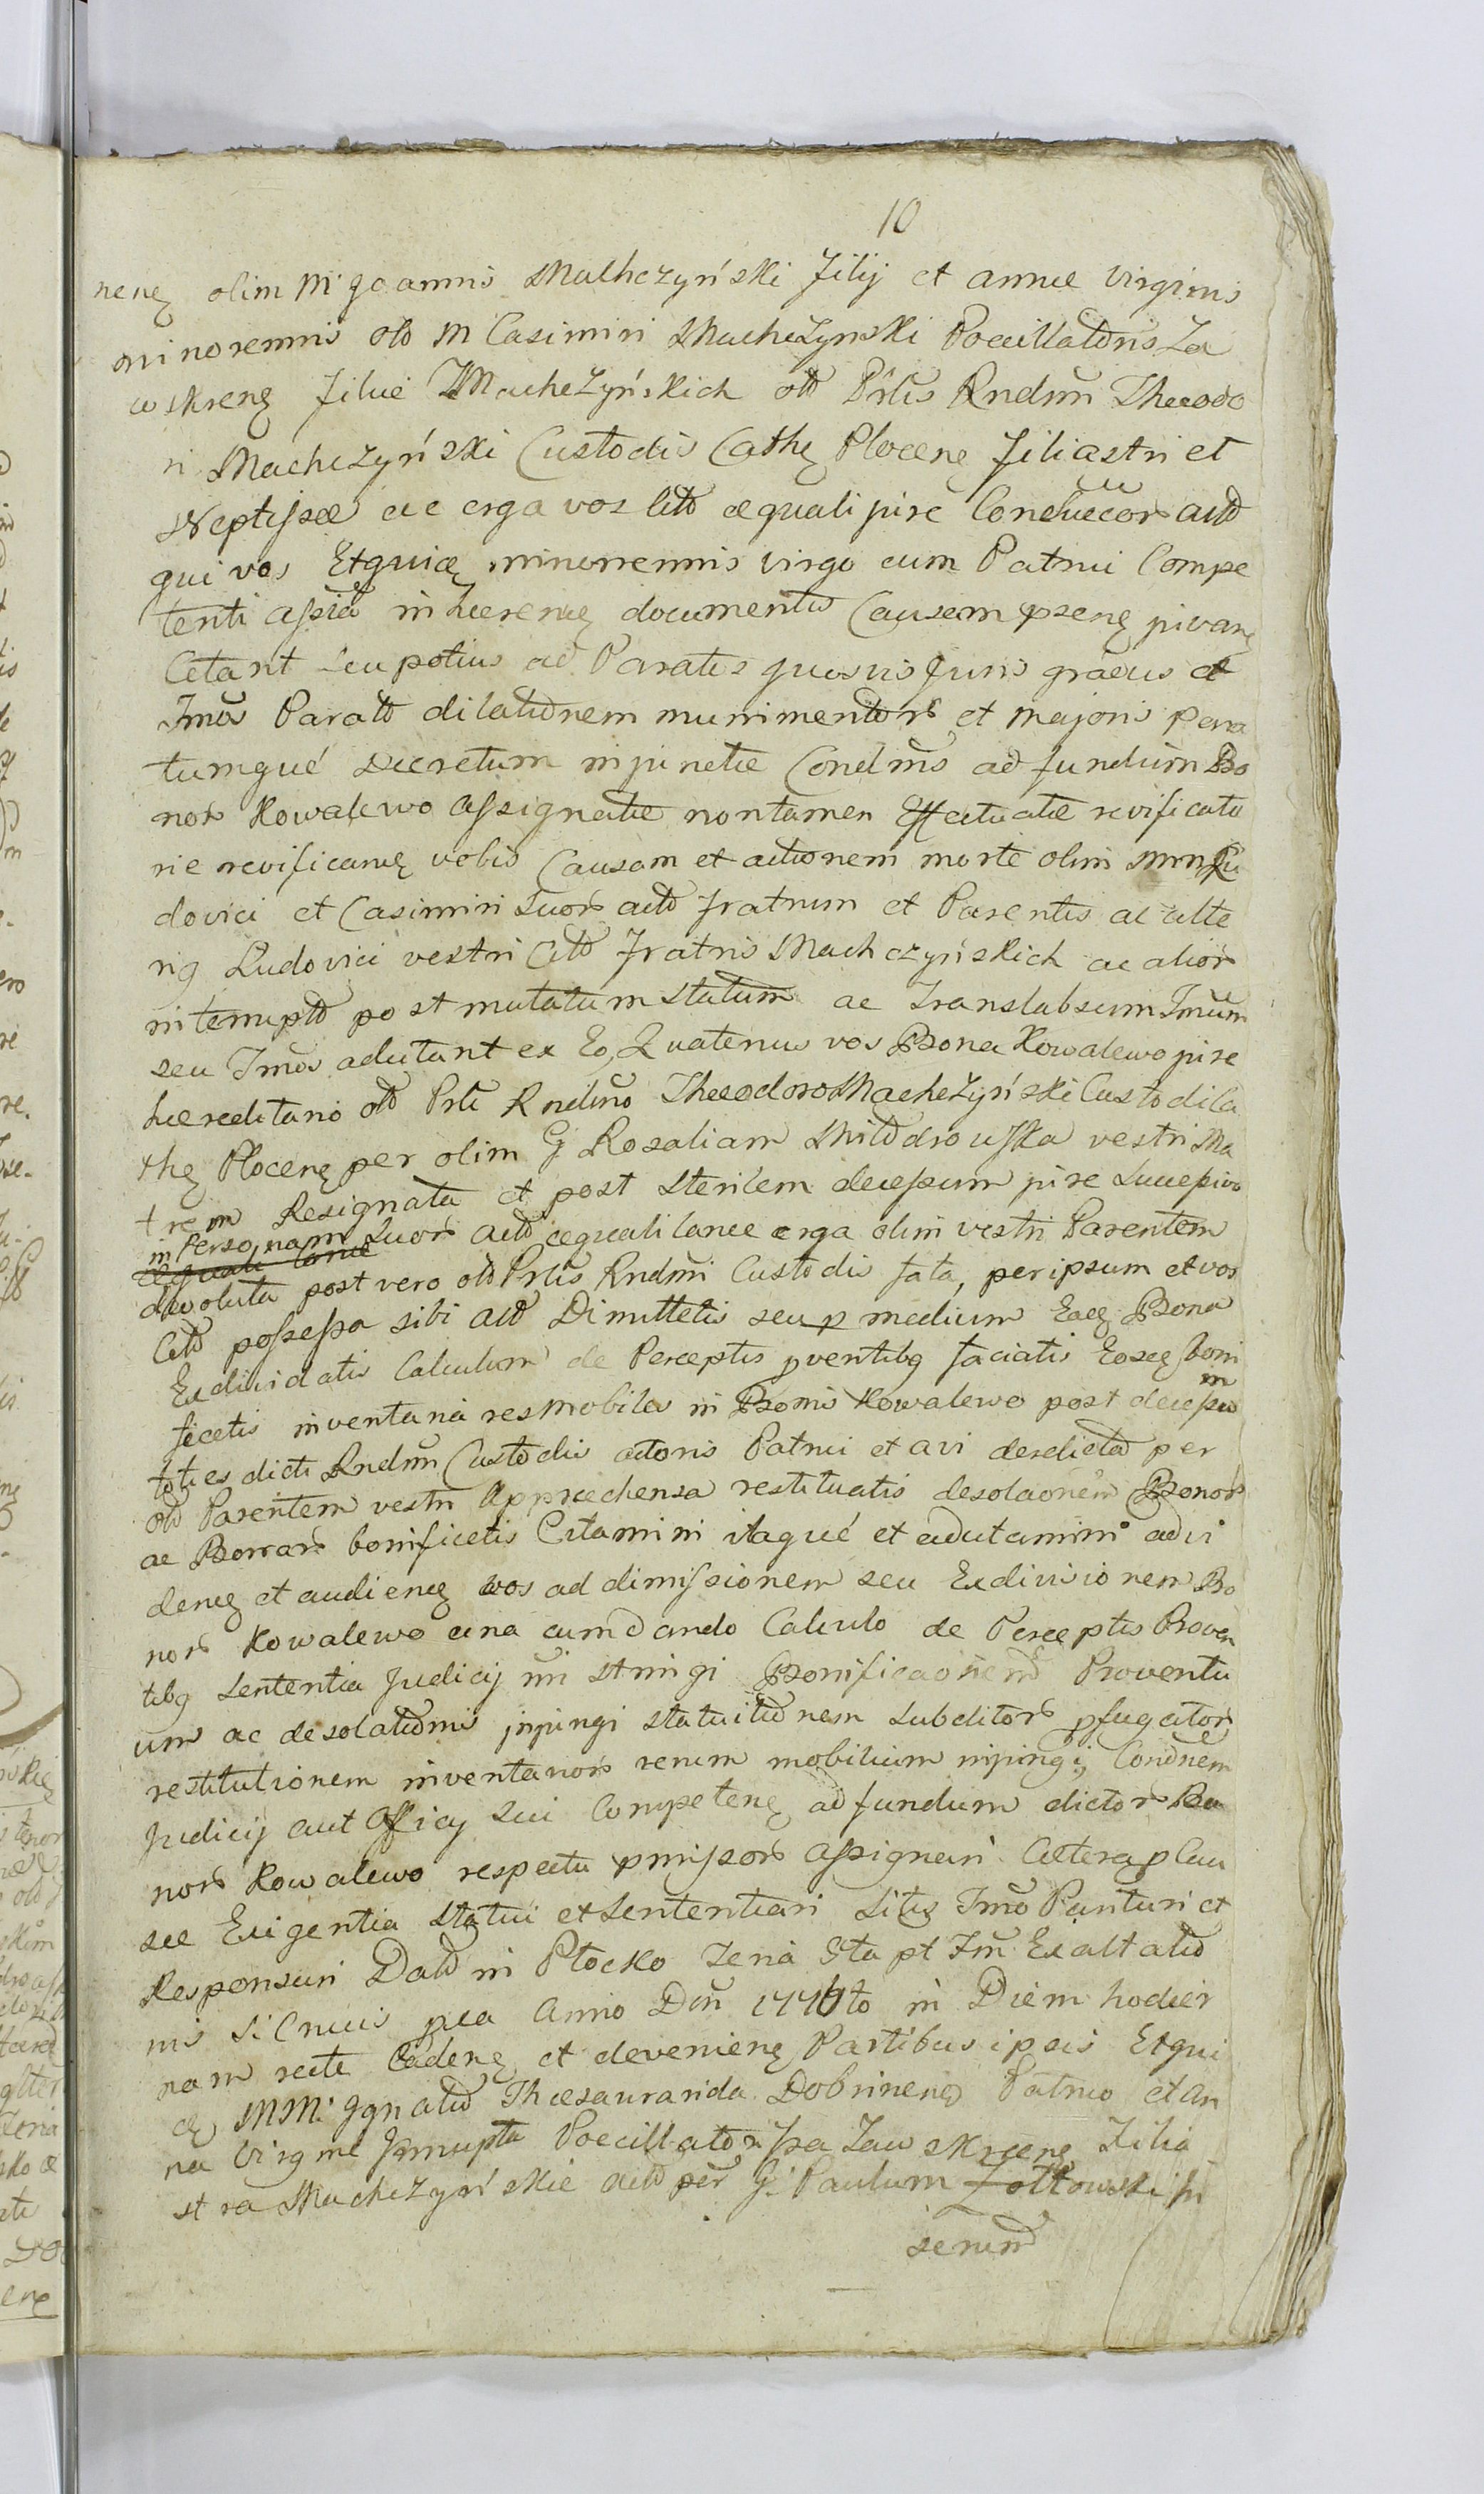 10
neng olim M Joannis Machczyński filij et annæ virginis
minorennis olò M Casimiri Machczynski Pocillatoris Za
wskreng filiæ Machczyńskich olò Prlis Rndmi Theodo
ri Machczyński Custodis Cathę Plocenę filiastri et
Neptissæ ac erga vos citò æquali jure Conducor actò
qui vos Etquią minorennis virgo cum Patrui Compe
tenti assia inhærenę documentis Causam psenę
Citant seu potius ad Paratis quosvis juris gradus et
Tmos Paratò dilationem munimentorũ et majoris para
tumqué Decretum injunctæ Condmis ad fundum Bo
norũ Kowalewo assignatæ nontamen Effectuatæ revificato
rie revificanę vobis Causam et actionem morte olim MM Lu
dovici et Casimiri Suorũ actò fratrum et Parentis ac alte
rig Ludovici vestri Citò fratris Machczyńskich ac aliorũ
interruptò post mutatum statum ac Translabsum Tmum
seu Tmos adcitant ex Eo, Quatenus vos Bona Kowalewo jure
hæreditario olò Prli Rndmo Theodoro Machczyński Custodi Ca
thę Plocenę per olim G Rosaliam vestri Ma
trem Resignata et post sterilem decessum jure Successivo
in Personam Suorũ actò æquali lance erga olim vestri Parentem
devoluta post vero olò Prlis Rndmi Custodis fata, per ipsum et vos
Citò possessa sibi actò Dimittetis seu p medium Eaę Bona
Exdividatis Calculum de Perceptis pventibg faciatis Eoseę boni
ficetis inventaria res mobiles in Bonis Kowalewo post decessum
toties dicti Rndmi Custodis actoris Patrui et avi derelicta per
olò Parentem vestri Appræhensa restituatis desolaonem Bonorũ
ac Borrarũ bonificetis Citamini itaqué et adcitamini ad vi
denę et audienę vos ad dimissionem seu Exdivisionem Bo
norũ Kowalewo una cum dando Calculo de Perceptis Proven
tibg Sententia Judicij stringi Bonificaonem Proventu
um ac desolationis injungi statuitionem subditorũ pfugatorũ
restitutionem inventariorũ rerum mobilium injungi, Condnem
Judicij aut Officij sui Competenę ad fundum dictorũ Bo
norũ Kowalewo respectu pmissorũ assignari Cætera p Cau
sæ Exigentia statui et Sententiari Sitis Tmo Parituri et
Responsuri Datò in Płocko Feria 6ta pt Fm Exaltatio
nis S Crucis pca Anno Dni 1776to in Diem hodier
nam recte Cadenę et devenienę Partibus ipsis Etqui
dę MM: Ignatiò Thæsaurarida Dobrinenę Patruo et An
na Virgine Innupta Pocillatorissa Zawskreenę Filia
stra Machczyńskie actò per G: Paulum Zołtowski in
serund